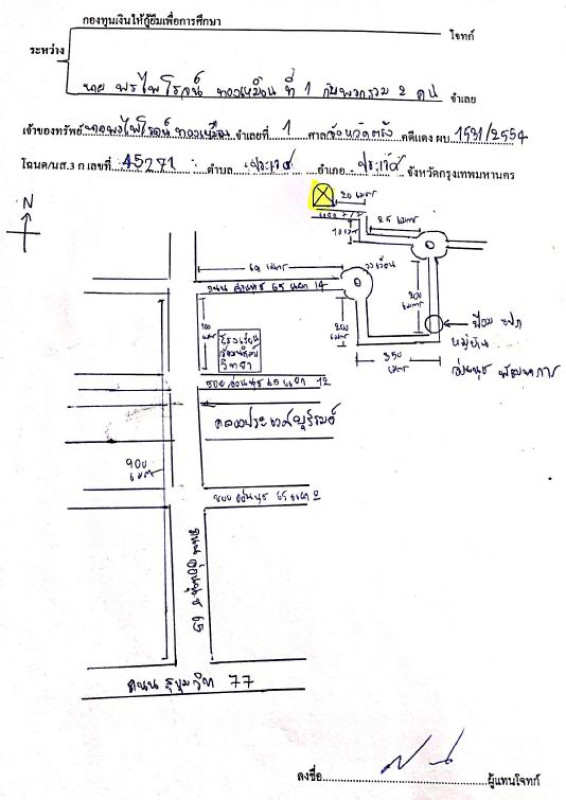 กองทุนเงินให้กู้ยืมเพื่อการศึกษา
โจทก์
ระหว่าง
นาย พรไพโรจน์ ทองเหมือน ที่ 1 กับพวกรวม 2 คน จำเลย
เจ้าของทรัพย์ นายพรไพโรจน์ ทองเหมือน จำเลยที่ 1 ศาลจังหวัดตรัง คดีแดง ผบ 1531/2554
โฉนด/นส.3 ก เลขที่ 45271 ตำบล ประเวศ อำเภอ ประเวศ จังหวัดกรุงเทพมหานคร
N
20 เมตร
10 เมตร
25 เมตร
เมตร
วงเวียน
ถนน อ่อนนุช 65 แยก 14
200 เมตร
200 เมตร
ป้อม รปภ
หมู่บ้าน
อ่อนนุช พัฒนาการ
350 เมตร
100 เมตร
โรงเรียน
วิทยา
ซอย อ่อนนุช 65 แยก 12
คลองประเวศบุรีรมย์
900 เมตร
ซอย อ่อนนุช 65 แยก 2
ถนน อ่อนนุช 65
ถนน สุขุมวิท 77
ลงชื่อ ผู้แทนโจทก์